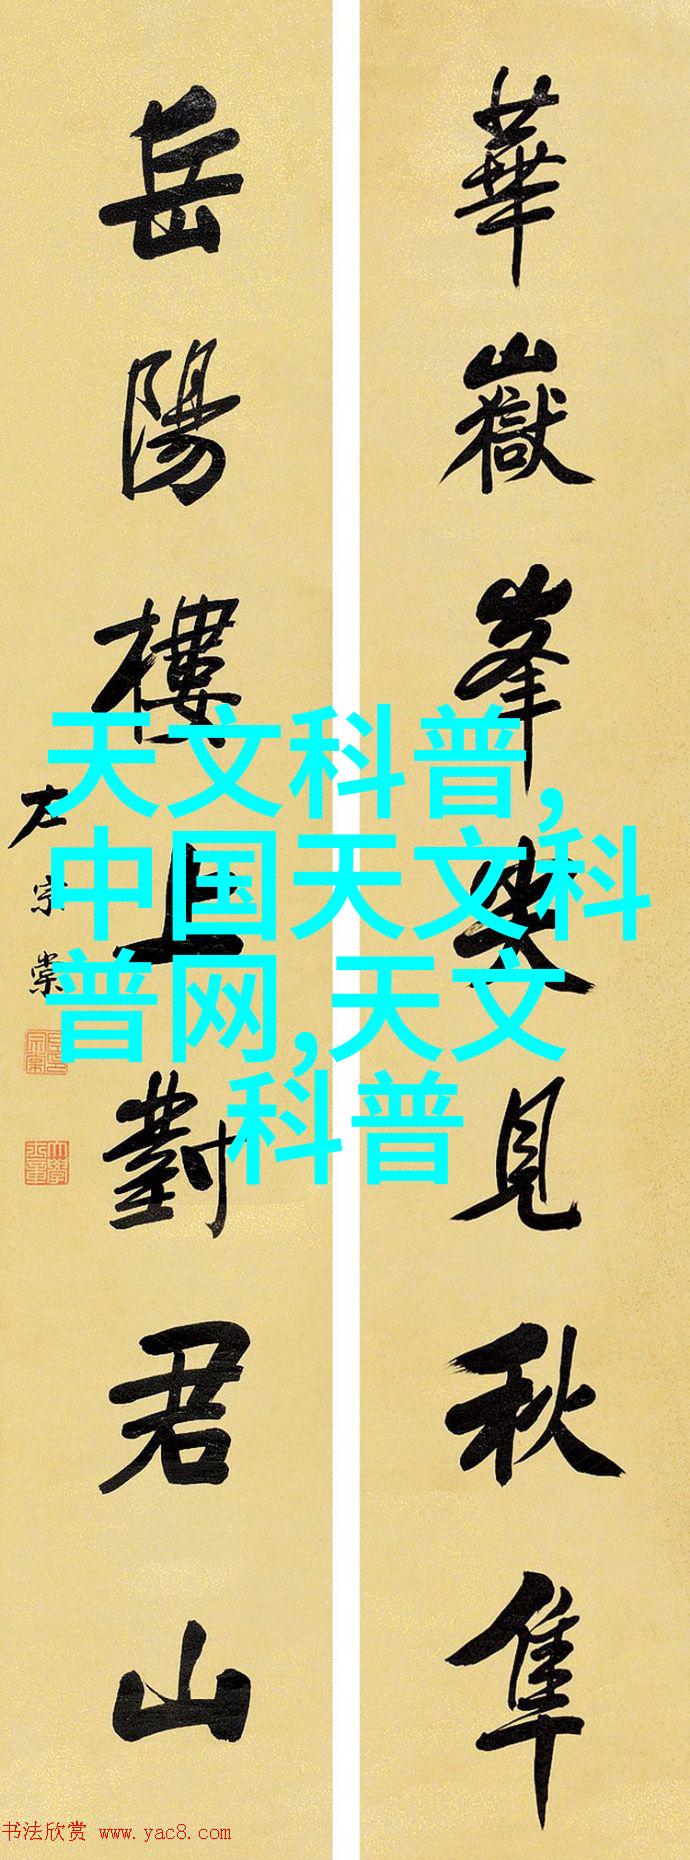 華嶽峯尖見秋隼
岳陽樓上對君山
左宗棠
天文科普,
中国天文科
普网,天文
科普
书法欣赏 www.yac8.com